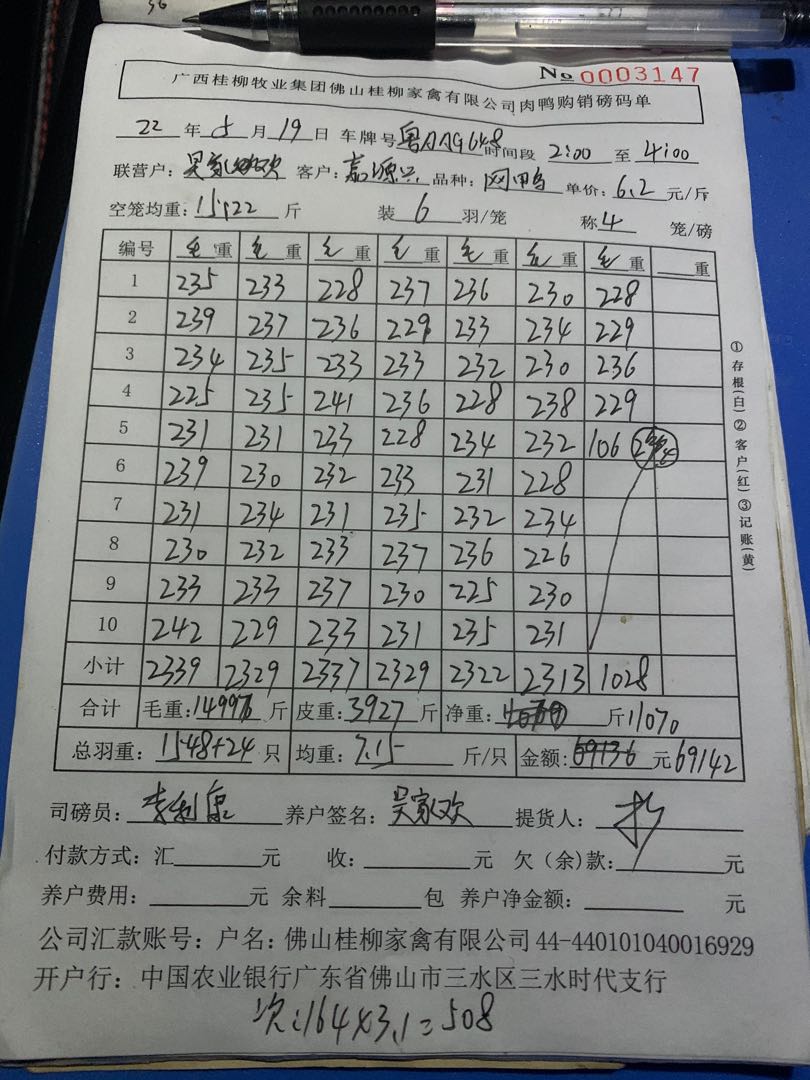 No 0003147
广西桂柳牧业集团佛山桂柳家禽有限公司肉鸭购销磅码单
22 年 5 月 19 日 车牌号 粤AAG648 时间段 2:00 至 4:00
联营户: 吴家欢 客户: 嘉源兴 品种: 网鸭 单价: 6.2 元/斤
空笼均重: 15.22 斤 装 6 羽/笼 称 4 笼/磅
编号 毛重 毛重 毛重 毛重 毛重 毛重 毛重 重
1 235 233 228 237 236 230 228
2 239 237 236 229 233 234 229
3 234 235 233 233 232 230 236
4 225 235 241 236 228 238 229
5 231 231 233 228 234 232 106
6 239 230 232 233 231 228
7 231 234 231 235 232 234
8 230 232 233 237 236 226
9 233 233 237 230 225 230
10 242 229 233 231 235 231
小计 2339 2329 2337 2329 2322 2313 1028
合计 毛重: 14997 斤 皮重: 3927 斤 净重: 斤 11070
总羽重: 1548+24 只 均重: 7.15 斤/只 金额: 69136 元 69142
司磅员: 李利 养户签名: 吴家欢 提货人:
付款方式: 汇 元 收: 元 欠(余)款: 元
养户费用: 元 余料 包 养户净金额: 元
公司汇款账号: 户名: 佛山桂柳家禽有限公司 44-440101040016929
开户行: 中国农业银行广东省佛山市三水区三水时代支行
次: 164×3.1=508
①存根(白)②客户(红)③记账(黄)